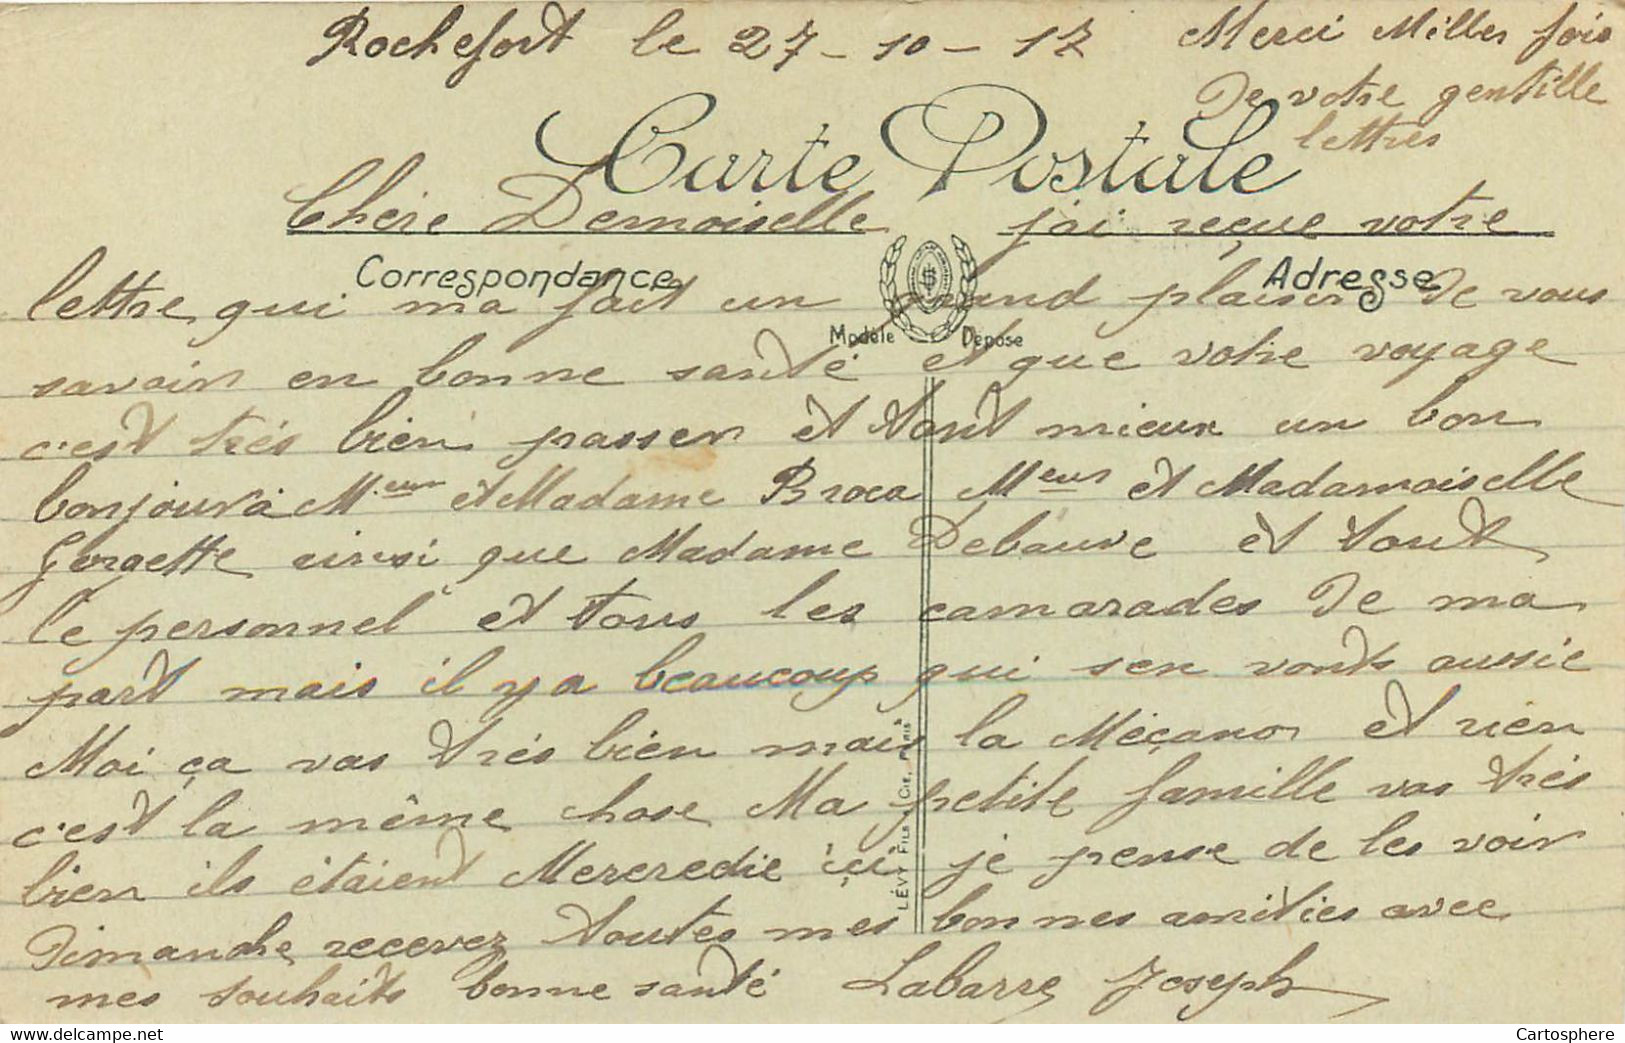 Rochefort le 27-10-17
Merci Milles fois
de votre gentille
lettres
Carte Postale
Chére Demoiselle j'ai reçue votre
Correspondance
Adresse
lettre qui ma fait un grand plaisir de vous
Modèle Déposé
savoir en bonne santé et que votre voyage
c'est trés bien passer et tant mieux un bon
bonjour à Mr et Madame Broca Meur et Madamoiselle
Gorgette ainsi que Madame Debauve et tout
le personnel et tous les camarades de ma
part mais il y a beaucoup qui sen vonts aussie
Moi ça vas trés bien mais la Méçano et rien
c'est la même chose Ma petite famille vas trés
bien ils étaient Mereredie içi je pense de les voir
Dimanche recevez toutes mes bonnes amitiés avec
mes souhaits bonne santé Labarre Joseph
LÉVY FILS & CIE, PARIS
www.delcampe.net
Cartosphere